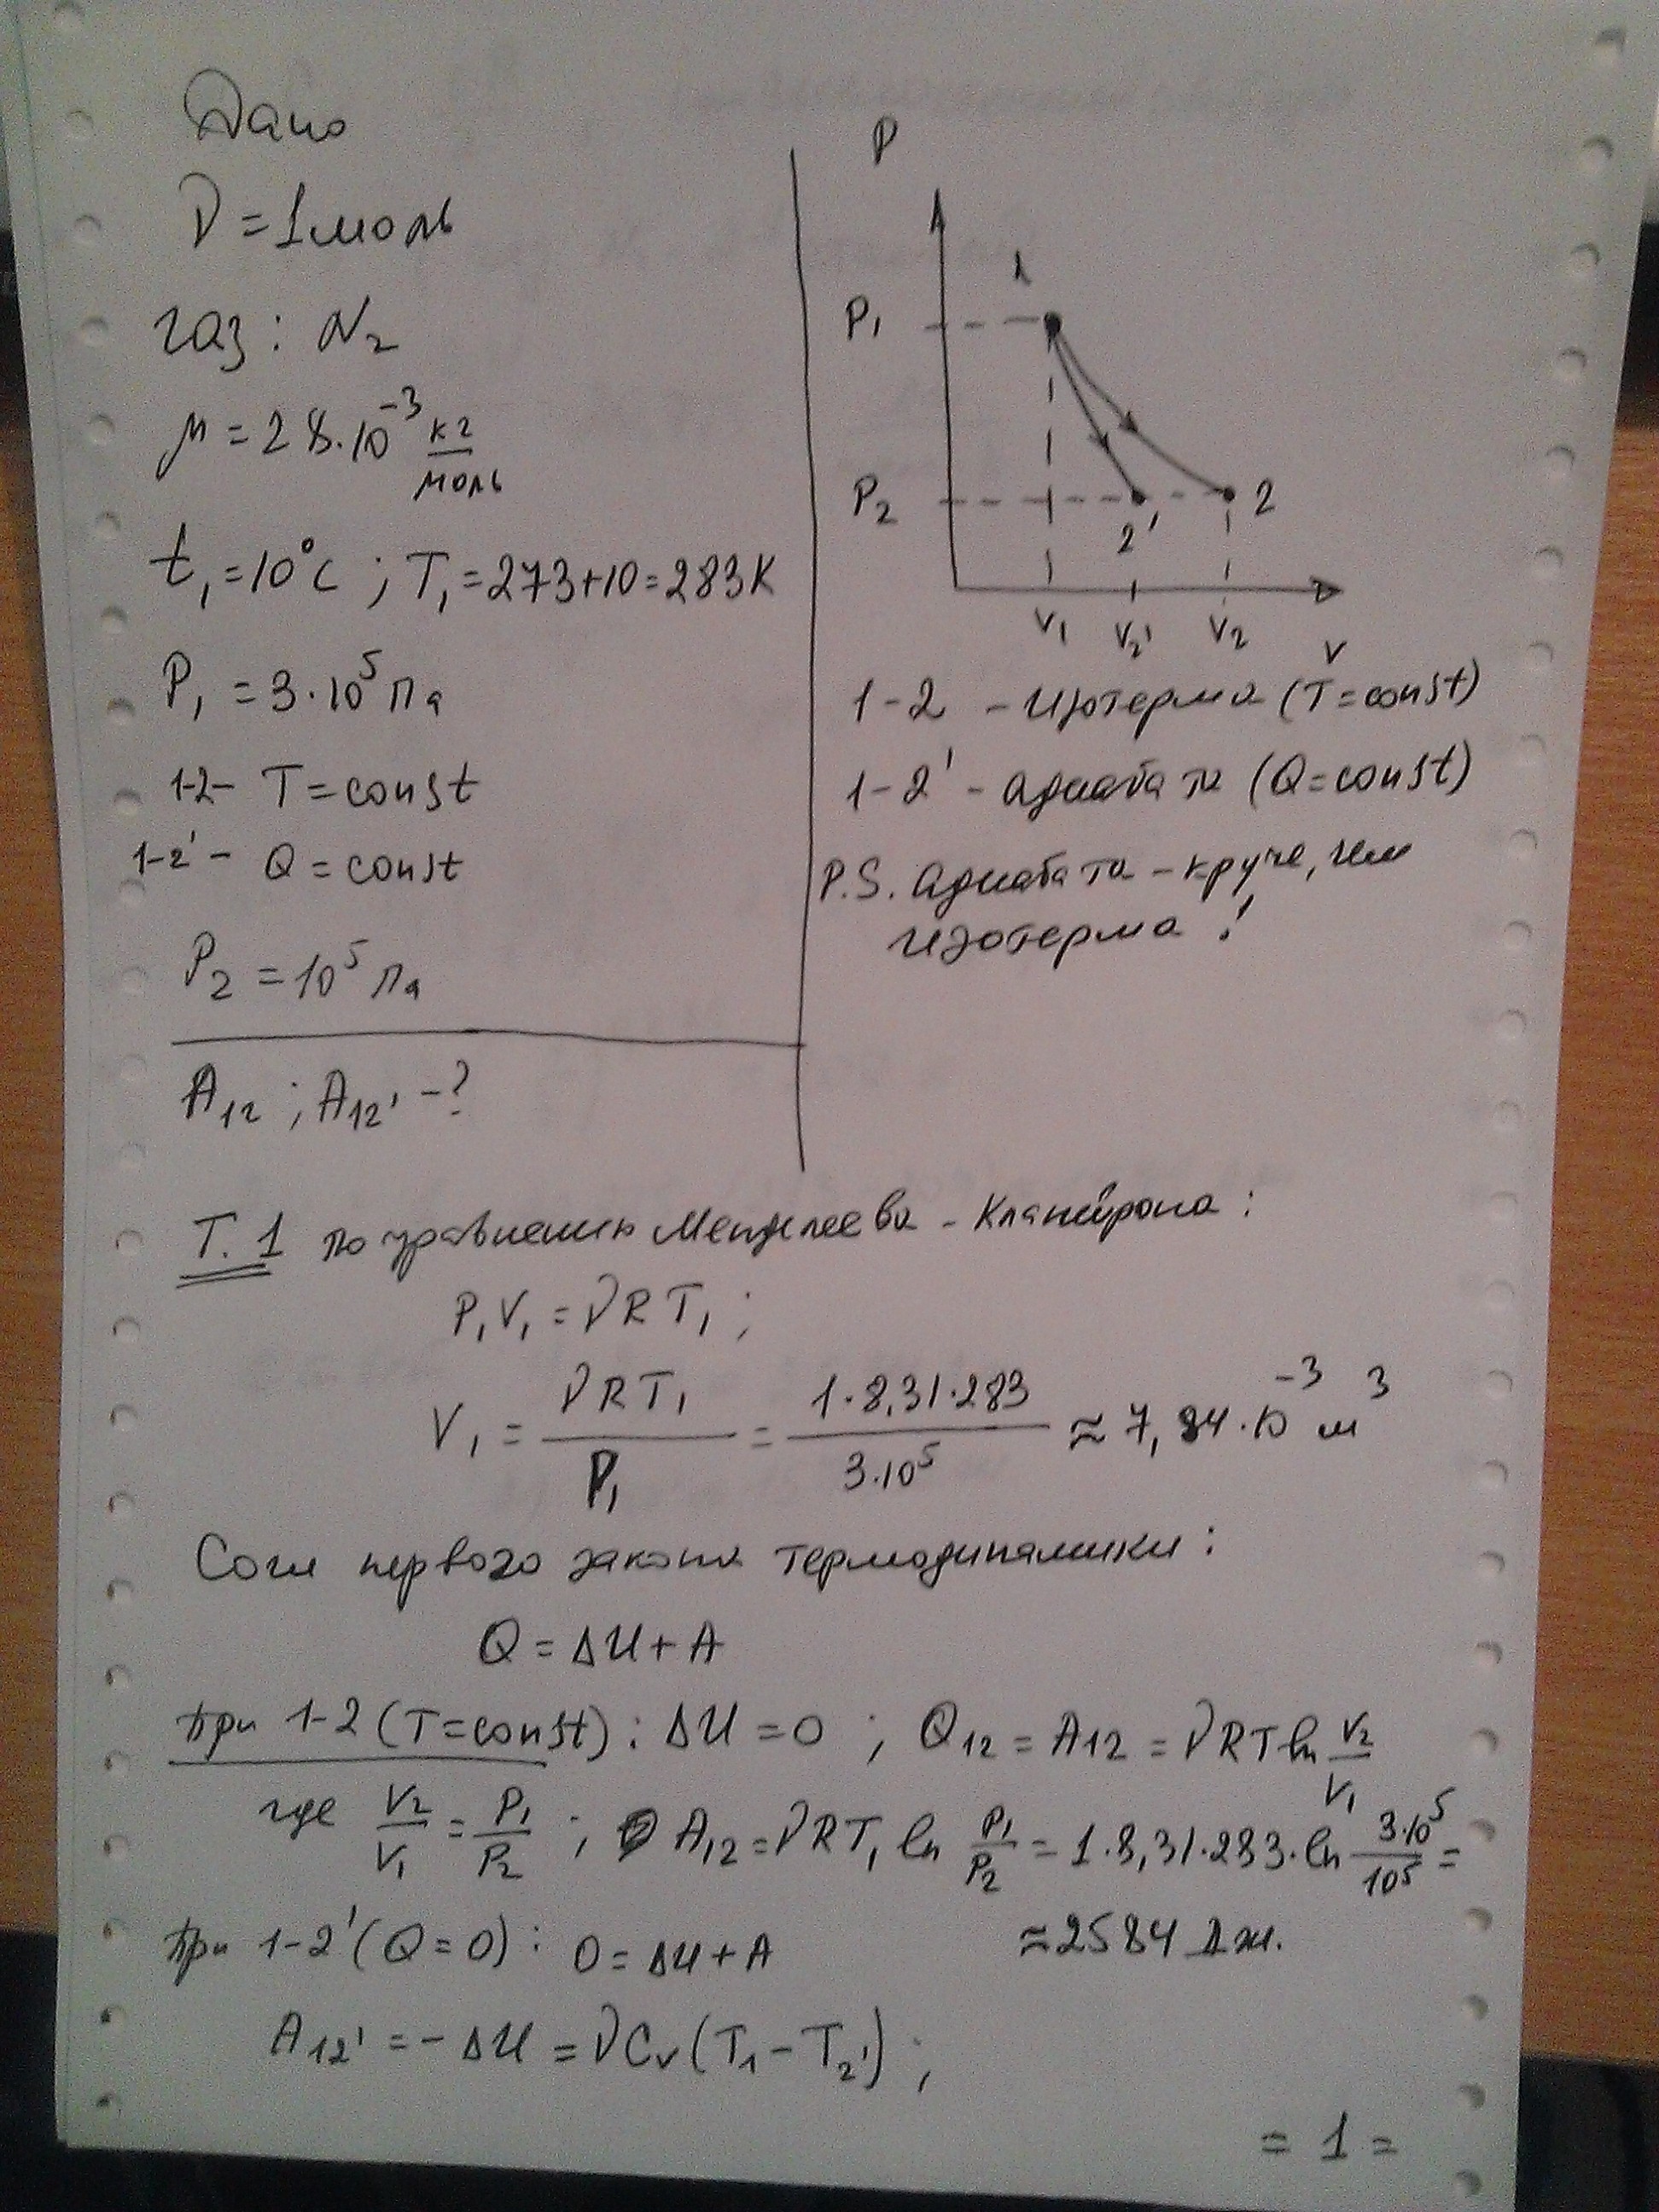 Дано
ν = 1 моль
газ: N₂
μ = 28·10⁻³ кг/моль
t₁ = 10°C ; T₁ = 273+10 = 283K
P₁ = 3·10⁵ Па
1-2 - T = const
1-2' - Q = const
P₂ = 10⁵ Па
A₁₂ ; A₁₂' - ?
P
1
P₁
P₂
2'
2
V₁ V₂' V₂ V
1-2 - Изотерма (T = const)
1-2' - адиабата (Q = const)
P.S. Адиабата - круче, чем
изотерма!
Т. 1 по уравнению Менделеева - Клапейрона:
P₁V₁ = νRT₁ ;
V₁ = νRT₁/P₁ = 1·8,31·283/3·10⁵ ≈ 7,84·10⁻³ м³
Согл первого закона термодинамики:
Q = ΔU + A
при 1-2 (T = const): ΔU = 0 ; Q₁₂ = A₁₂ = νRT ln V₂/V₁
где V₂/V₁ = P₁/P₂ ; A₁₂ = νRT₁ ln P₁/P₂ = 1·8,31·283·ln 3·10⁵/10⁵ =
≈ 2584 Дж.
при 1-2' (Q = 0): 0 = ΔU + A
A₁₂' = - ΔU = νCᵥ(T₁ - T₂') ;
= 1 =